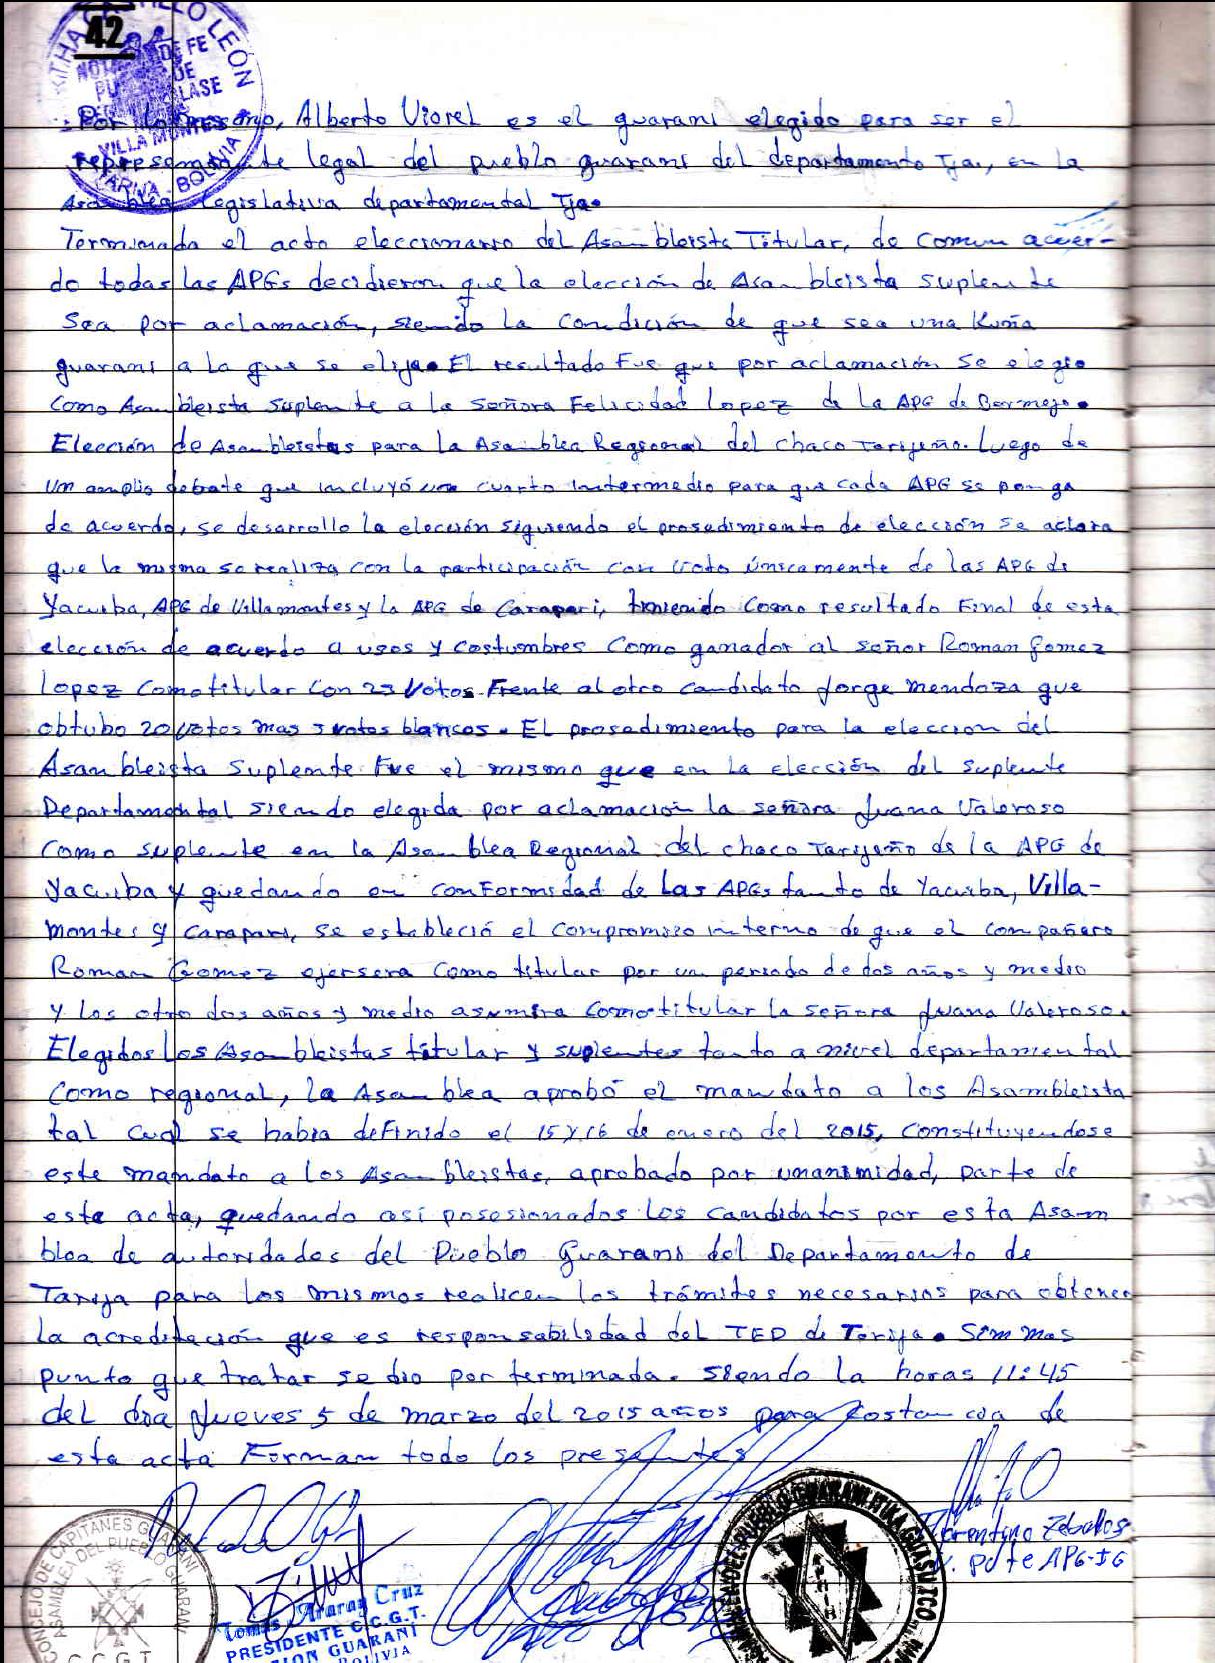 42
CASTILLO LEÓN
NOT DE FE
PU DE
CLASE
VILLA MONTES
TARIJA - BOLIVIA
Por lo Alberto Viorel es el guarani elegido para ser el
legal del pueblo guarani del departamento Tja, en la
Asamblea Legislativa departamental Tja.
Terminada el acto eleccionario del Asambleista Titular, de comun acuer-
do todas las APGs decidieron que la elección de Asambleista suplente
Sea por aclamación, siendo la condición de que sea una Kuña
guarani a la que se elija. El resultado Fue que por aclamación se elegio
como Asambleista suplente a la señora Felicidad Lopez de la APG de Bermejo.
Elección de Asambleistas para la Asamblea Regional del chaco Tarijeño. Luego de
un amplio debate que incluyó un cuarto intermedio para que cada APG se ponga
de acuerdo, se desarrollo la elección siguiendo el prosedimiento de elección se aclara
que la misma se realiza con la participación con voto únicamente de las APG de
Yacuiba, APG de Villamontes y la APG de Carapari, teniendo como resultado Final de esta
elección de acuerdo a usos y costumbres como ganador al señor Roman Gomez
Lopez como titular con 23 Votos Frente al otro candidato Jorge Mendoza que
obtubo 20 votos mas 3 votos blancos. El prosedimiento para la eleccion del
Asambleista Suplente Fue el mismo que en la elección del suplente
Departamental siendo elegida por aclamación la señora Juana Valeroso
como suplente en la Asamblea Regional del chaco Tarijeño de la APG de
Yacuiba y quedando en conFormidad de las APGs tanto de Yacuiba, Villa-
montes y Carapari, se estableció el compromiso interno de que el compañero
Roman Gomez ejersera como titular por un periodo de dos años y medio
y los otro dos años y medio asumira como titular la señora Juana Valeroso.
Elegidos los Asambleistas titular y suplentes tanto a nivel departamental
como regional, la Asamblea aprobó el mandato a los Asambleista
tal cual se habia deFinido el 15 y 16 de enero del 2015, constituyendose
este mandato a los Asambleistas, aprobado por unanimidad, parte de
este acta, quedando así posesionados los candidatos por esta Asam
blea de autoridades del Pueblo Guarani del Departamento de
Tarija para los mismos realicen los trámites necesarios para obtener
la acreditación que es responsabilidad del TED de Tarija. Sin mas
punto que tratar se dio por terminada. siendo la horas 11:45
del dia Jueves 5 de marzo del 2015 años para costancia de
esta acta Firman todo los presentes
CONSEJO DE CAPITANES GUARANI
ASAMBLEA DEL PUEBLO GUARANI
C.C.G.T.
Tomas Araray Cruz
PRESIDENTE C.C.G.T.
GUARANI
BOLIVIA
ASAMBLEA DEL PUEBLO GUARANI ITIKA GUASU
Florentino Zeballos
V. Pdte APG-IG